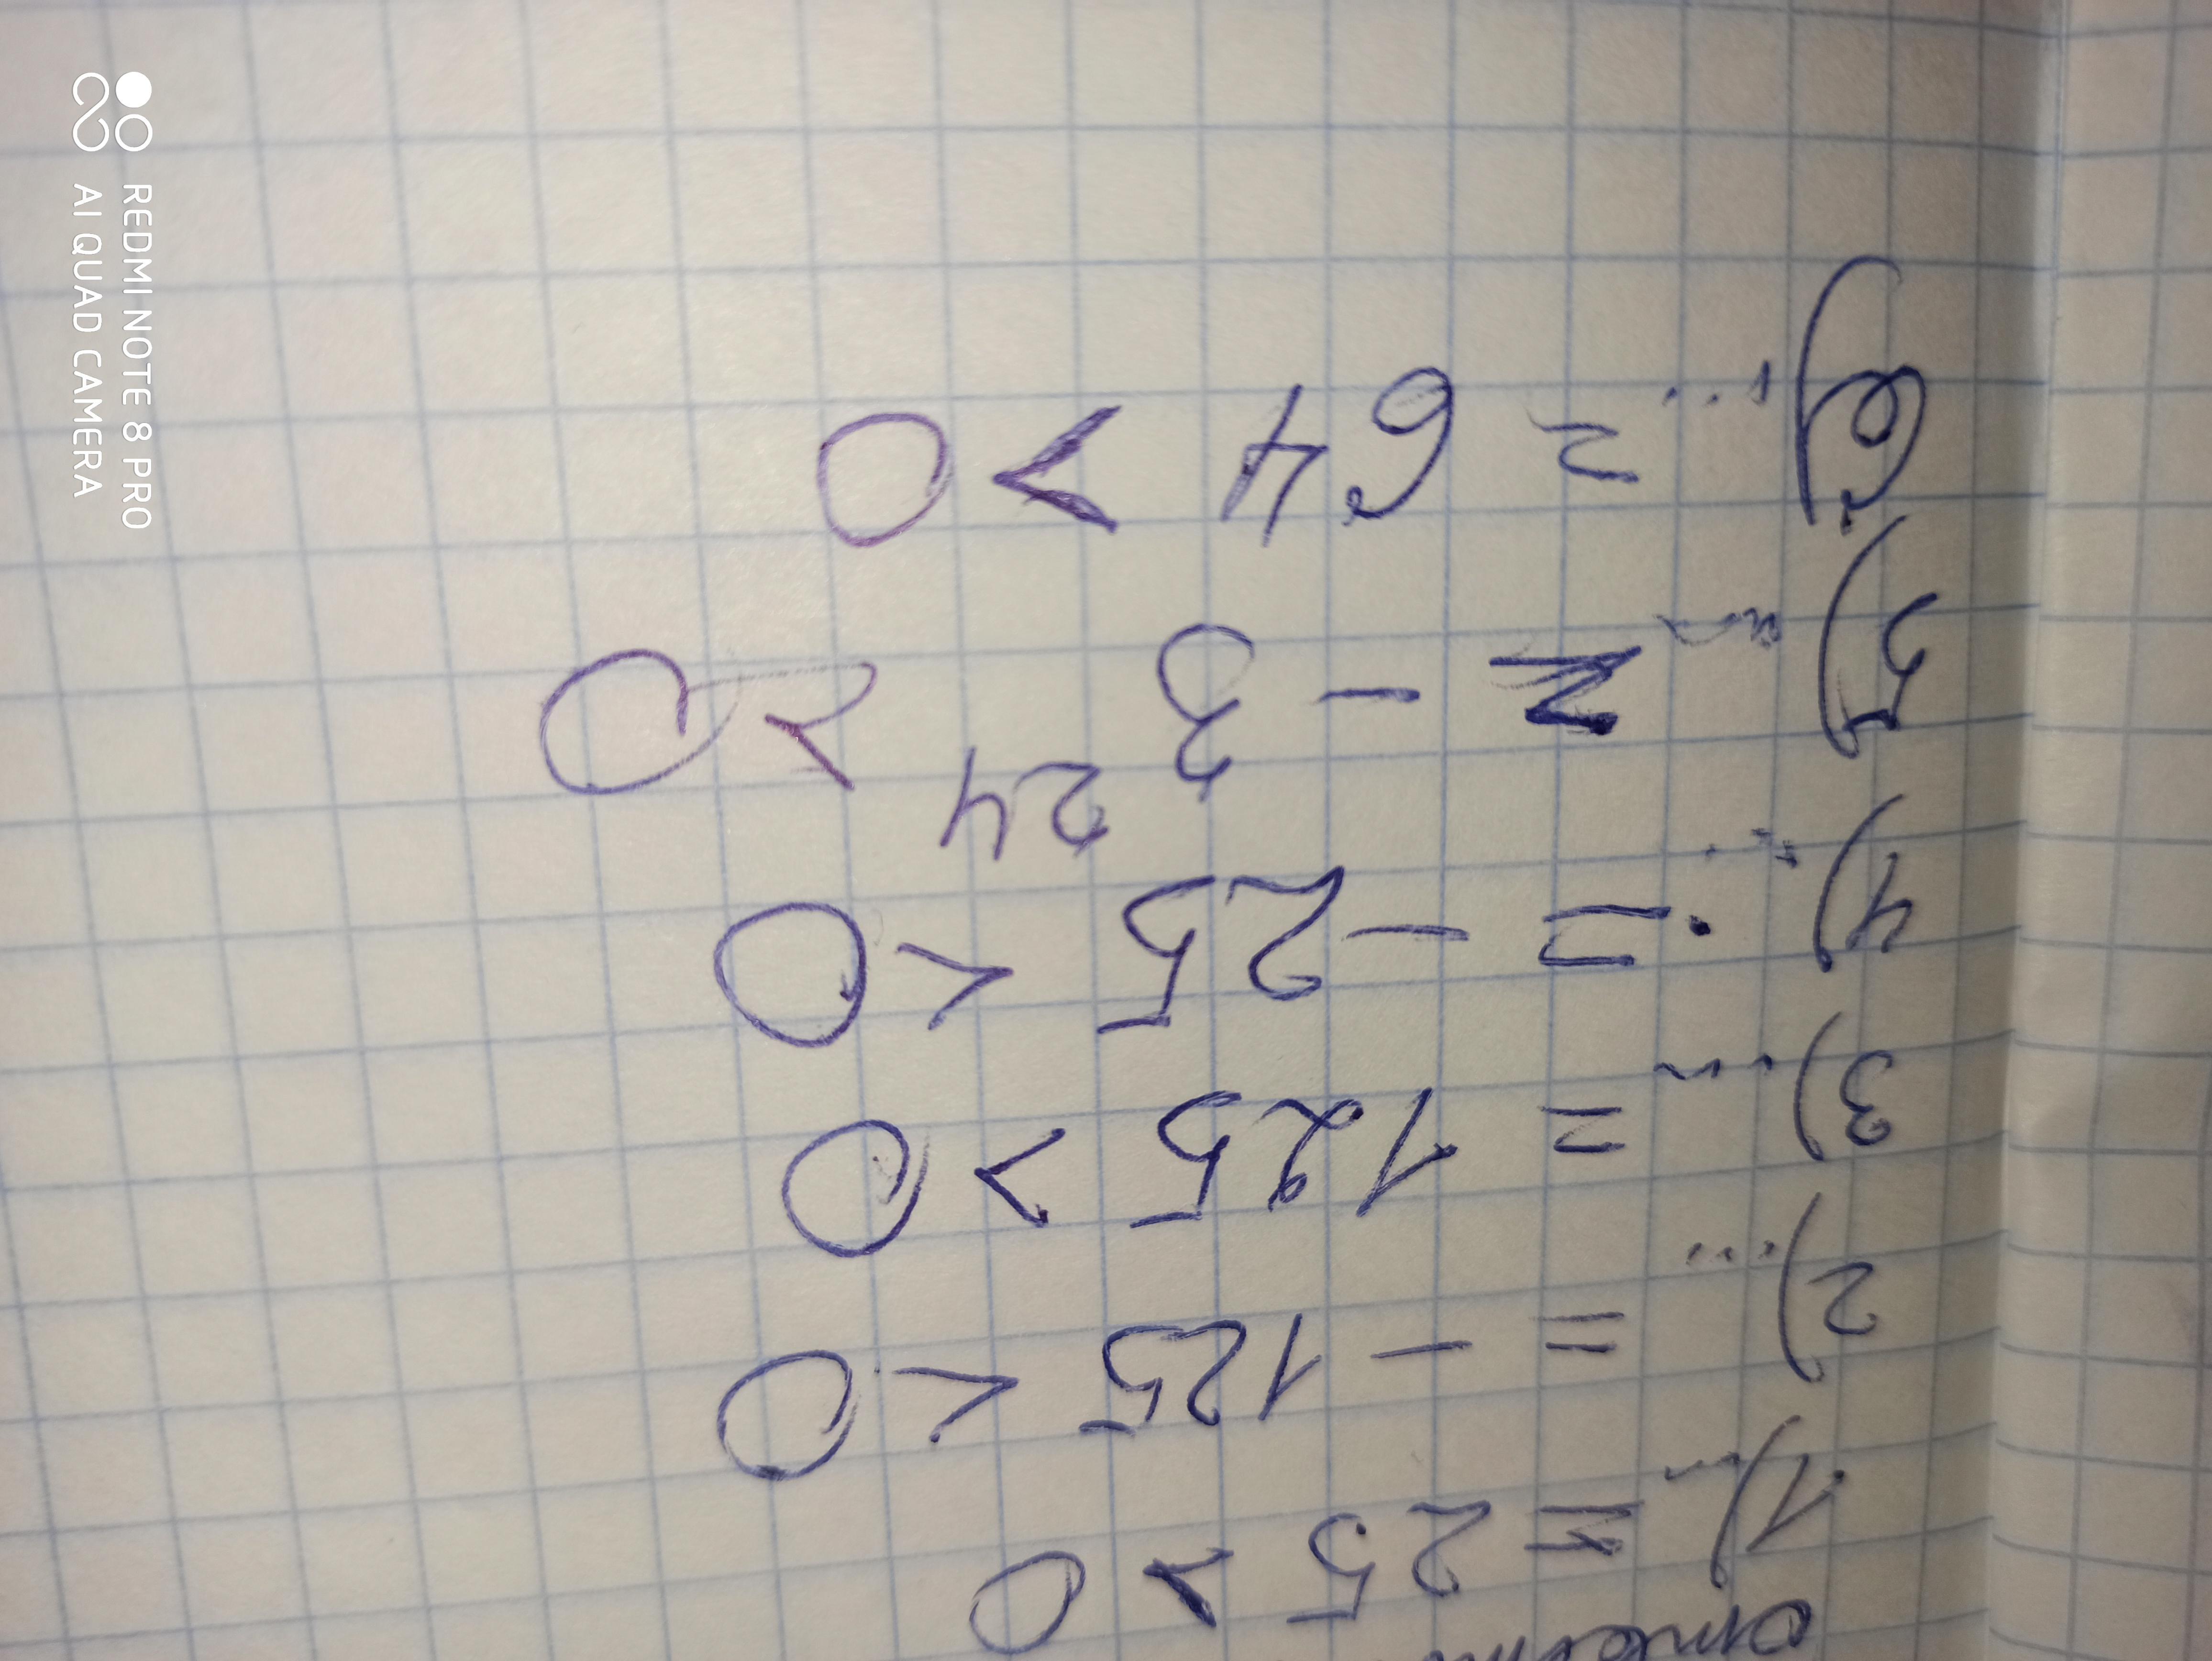 1) ... = 25 > 0
2) ... = - 125 < 0
3) ... = 125 > 0
4) ... = - 25 < 0
5) ... = - 3²⁴ > 0
6) ... = 64 > 0
REDMI NOTE 8 PRO
AI QUAD CAMERA